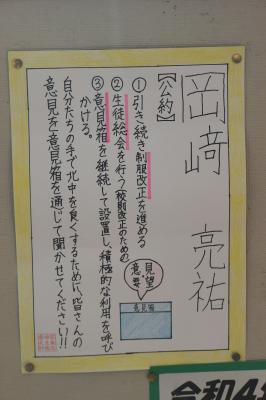 岡﨑 亮祐
【公約】
①引き続き制服改正を進める
②生徒総会を行う(校則改正のための)
③意見箱を継続して設置し、積極的な利用を呼び
かける。
自分たちの手で北中を良くするために、皆さんの
意見を意見箱を通じて聞かせてください!!
意見・要望
意見箱
令和4年